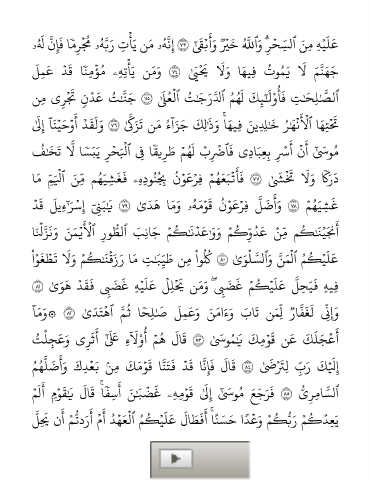 عَلَيْهِ مِنَ ٱلسِّحْرِ ۗ وَٱللَّهُ خَيْرٌ وَأَبْقَىٰٓ ﴿٧٣﴾ إِنَّهُۥ مَن يَأْتِ رَبَّهُۥ مُجْرِمًا فَإِنَّ لَهُۥ
جَهَنَّمَ لَا يَمُوتُ فِيهَا وَلَا يَحْيَىٰ ﴿٧٤﴾ وَمَن يَأْتِهِۦ مُؤْمِنًا قَدْ عَمِلَ
ٱلصَّـٰلِحَـٰتِ فَأُو۟لَـٰٓئِكَ لَهُمُ ٱلدَّرَجَـٰتُ ٱلْعُلَىٰ ﴿٧٥﴾ جَنَّـٰتُ عَدْنٍ تَجْرِى مِن
تَحْتِهَا ٱلْأَنْهَـٰرُ خَـٰلِدِينَ فِيهَا ۚ وَذَٰلِكَ جَزَآءُ مَن تَزَكَّىٰ ﴿٧٦﴾ وَلَقَدْ أَوْحَيْنَآ إِلَىٰ
مُوسَىٰٓ أَنْ أَسْرِ بِعِبَادِى فَٱضْرِبْ لَهُمْ طَرِيقًا فِى ٱلْبَحْرِ يَبَسًا لَّا تَخَـٰفُ
دَرَكًا وَلَا تَخْشَىٰ ﴿٧٧﴾ فَأَتْبَعَهُمْ فِرْعَوْنُ بِجُنُودِهِۦ فَغَشِيَهُم مِّنَ ٱلْيَمِّ مَا
غَشِيَهُمْ ﴿٧٨﴾ وَأَضَلَّ فِرْعَوْنُ قَوْمَهُۥ وَمَا هَدَىٰ ﴿٧٩﴾ يَـٰبَنِىٓ إِسْرَٰٓءِيلَ قَدْ
أَنجَيْنَـٰكُم مِّنْ عَدُوِّكُمْ وَوَٰعَدْنَـٰكُمْ جَانِبَ ٱلطُّورِ ٱلْأَيْمَنَ وَنَزَّلْنَا
عَلَيْكُمُ ٱلْمَنَّ وَٱلسَّلْوَىٰ ﴿٨٠﴾ كُلُوا۟ مِن طَيِّبَـٰتِ مَا رَزَقْنَـٰكُمْ وَلَا تَطْغَوْا۟
فِيهِ فَيَحِلَّ عَلَيْكُمْ غَضَبِى ۖ وَمَن يَحْلِلْ عَلَيْهِ غَضَبِى فَقَدْ هَوَىٰ ﴿٨١﴾
وَإِنِّى لَغَفَّارٌ لِّمَن تَابَ وَءَامَنَ وَعَمِلَ صَـٰلِحًا ثُمَّ ٱهْتَدَىٰ ﴿٨٢﴾ ۞ وَمَآ
أَعْجَلَكَ عَن قَوْمِكَ يَـٰمُوسَىٰ ﴿٨٣﴾ قَالَ هُمْ أُو۟لَآءِ عَلَىٰٓ أَثَرِى وَعَجِلْتُ
إِلَيْكَ رَبِّ لِتَرْضَىٰ ﴿٨٤﴾ قَالَ فَإِنَّا قَدْ فَتَنَّا قَوْمَكَ مِنۢ بَعْدِكَ وَأَضَلَّهُمُ
ٱلسَّامِرِىُّ ﴿٨٥﴾ فَرَجَعَ مُوسَىٰٓ إِلَىٰ قَوْمِهِۦ غَضْبَـٰنَ أَسِفًا ۚ قَالَ يَـٰقَوْمِ أَلَمْ
يَعِدْكُمْ رَبُّكُمْ وَعْدًا حَسَنًا ۚ أَفَطَالَ عَلَيْكُمُ ٱلْعَهْدُ أَمْ أَرَدتُّمْ أَن يَحِلَّ